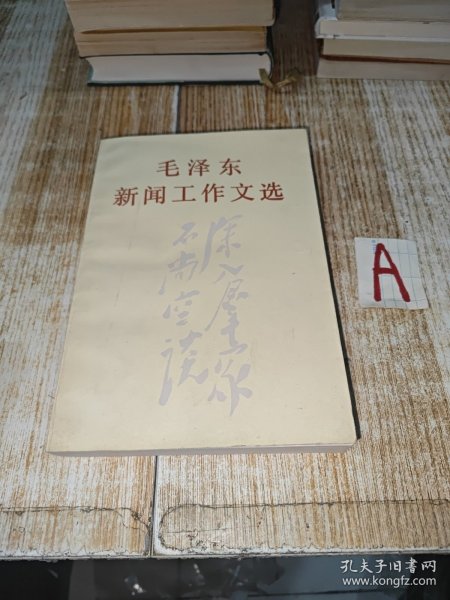 毛泽东
新闻工作文选
深入群众
不尚空谈
A
孔夫子旧书网
www.kongfz.com